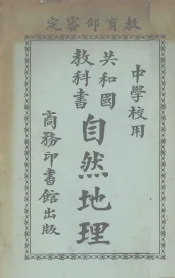 教育部審定
中學校用
共和國
教科書
自然地理
商務印書館出版